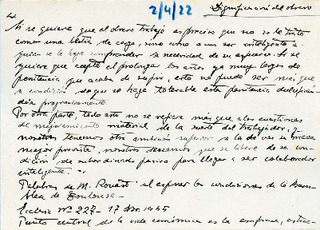 2/4/22
Dignificación del obrero
Si se quiere que el obrero trabaje es preciso que no se le trate
como una bestia de carga, sino como a un ser inteligente a
quien se le haga comprender la necesidad de su esfuerzo. Si se
quiere que acepte el prolongar los años ya muy largos de
penitencia que acaba de sufrir, esto no puede ser más que
a condición que se haga tolerable esta penitencia
progresivamente.
Por otra parte, todo esto no se refiere más que a las cuestiones
de mejoramiento material de la suerte del trabajador, y
nosotros tenemos otra ambición superior a la de ver la
mayor pronto, nosotros deseamos que se libere de su con-
dición de subordinado pasivo para llegar a ser colaborador
inteligente.
Palabras de M. al exponer las conclusiones de la Asam-
blea de Toulouse.
Ecclesia Nº 227 - 17 1945
Punto central de la vida económica es la empresa,